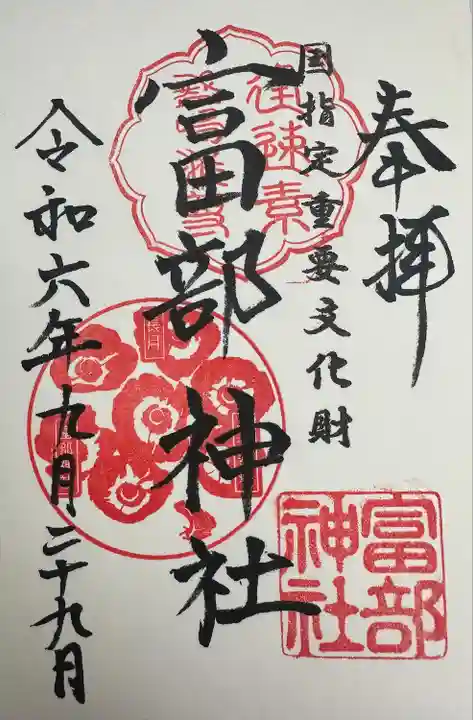 奉拝
国指定重要文化財
富部神社
令和六年九月二十九月
富部
神社
長月